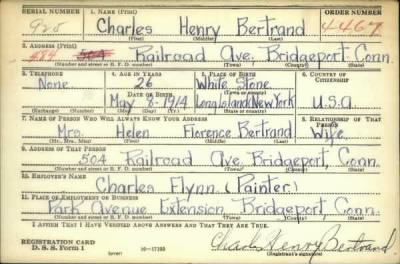 SERIAL NUMBER 1. NAME (Print) ORDER NUMBER
920 Charles Henry Bertrand 4467
(First) (Middle) (Last)
2. ADDRESS (Print)
484 504 Railroad Ave. Bridgeport Conn.
(Number and street or R. F. D. number) (Town) (County) (State)
3. TELEPHONE 4. AGE IN YEARS 5. PLACE OF BIRTH 6. COUNTRY OF CITIZENSHIP
None 26 White Stone
DATE OF BIRTH (Town or county)
May 8-1914 Long Island New York U.S.A
(Exchange) (Number) (Mo.) (Day) (Yr.) (State or country)
7. NAME OF PERSON WHO WILL ALWAYS KNOW YOUR ADDRESS 8. RELATIONSHIP OF THAT PERSON
Mrs. Helen Florence Bertrand Wife
(Mr., Mrs., Miss) (First) (Middle) (Last)
9. ADDRESS OF THAT PERSON
504 Railroad Ave. Bridgeport, Conn.
(Number and street or R. F. D. number) (Town) (County) (State)
10. EMPLOYER'S NAME
Charles Flynn (Painter)
11. PLACE OF EMPLOYMENT OR BUSINESS
Park Avenue Extension Bridgeport, Conn.
(Number and street or R. F. D. number) (Town) (County) (State)
I AFFIRM THAT I HAVE VERIFIED ABOVE ANSWERS AND THAT THEY ARE TRUE.
REGISTRATION CARD
D. S. S. Form 1 (over) 16-17105 Charles Henry Bertrand
(Registrant's signature)